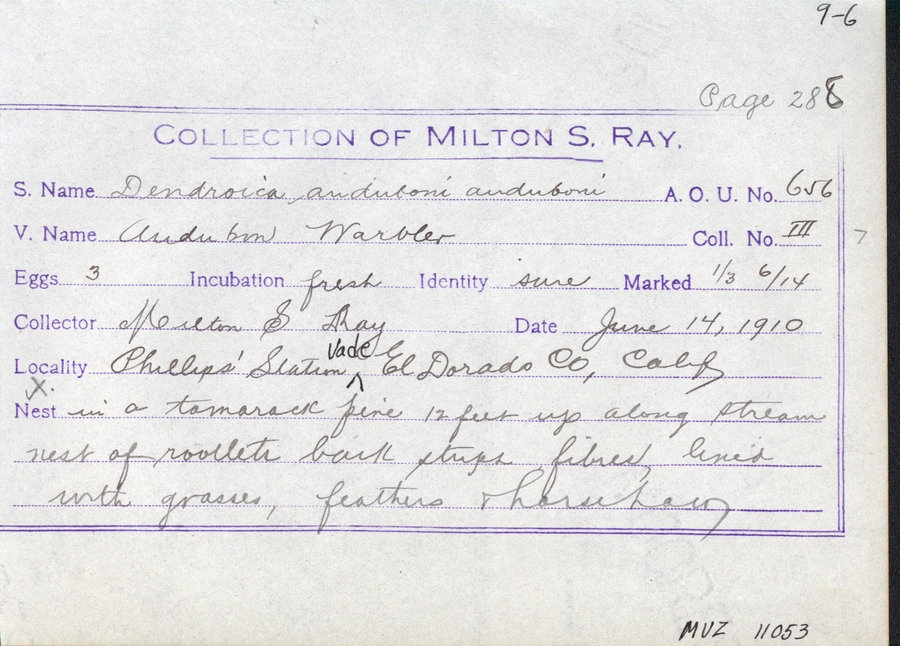 9-6
Page 288
COLLECTION OF MILTON S. RAY.
S. Name Dendroica auduboni auduboni A. O. U. No. 656
V. Name Audubon Warbler Coll. No. III 7
Eggs 3 Incubation fresh Identity sure Marked 1/3 6/14
Collector Milton S Ray Date June 14, 1910
Vade
Locality Phillips' Station, ^ El Dorado Co, Calif
X.
Nest in a tamarack pine 12 feet up along stream
nest of rootlets bark strips fibres, lined
with grasses, feathers & horsehair
MVZ 11053